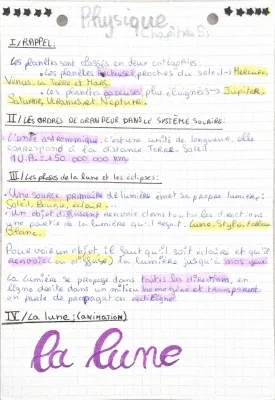 Physique
Chapitre 51
I/ RAPPEL:
Les planètes sont classés en deux catégories:
• Les planètes rocheuses, proches du soleil → Mercure,
Venus, la Terre et Mars.
• Les planètes gazeuses, plus éloignées → Jupiter,
Saturne, Uranus et Neptune.
II/ LES ORDRES DE GRANDEUR DANS LE SYSTÈME SOLAIRE:
L'unité astronomique, c'est une unité de longueur, elle
correspond à la distance Terre-Soleil.
1U.A = 150 000 000 km
III/ Les phases de la lune et les éclipses:
• Une source primaire de lumière émet sa propre lumière:
Soleil, Bougie, éclair.
• Un objet diffusant renvoie dans toutes les directions
une partie de la lumière qu'il reçoit. Lune, Stylo, tableau
Blanc.
Pour voir un objet, il faut qu'il soit éclairé et qu'il
renvoie (ou diffuse) la lumière jusqu'à nos yeux.
La lumière se propage dans toutes les directions, en
ligne droite dans un milieu homogène et transparent
on parle de propagation rectiligne
IV/ La lune: (ANIMATION)
la lune